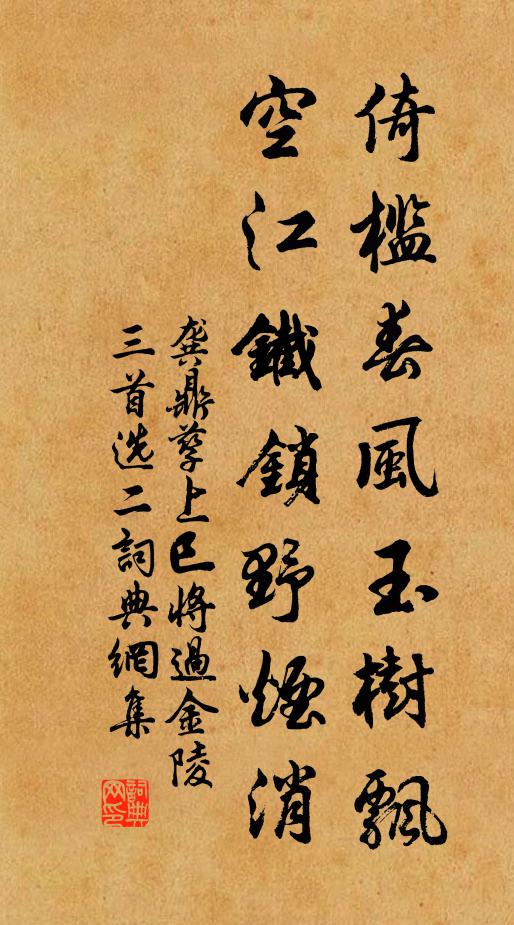 倚檻春風玉樹飄
空江鐵鎖野煙消
龔鼎孳上巳將過金陵
三首选二詞典網集
詞典网印